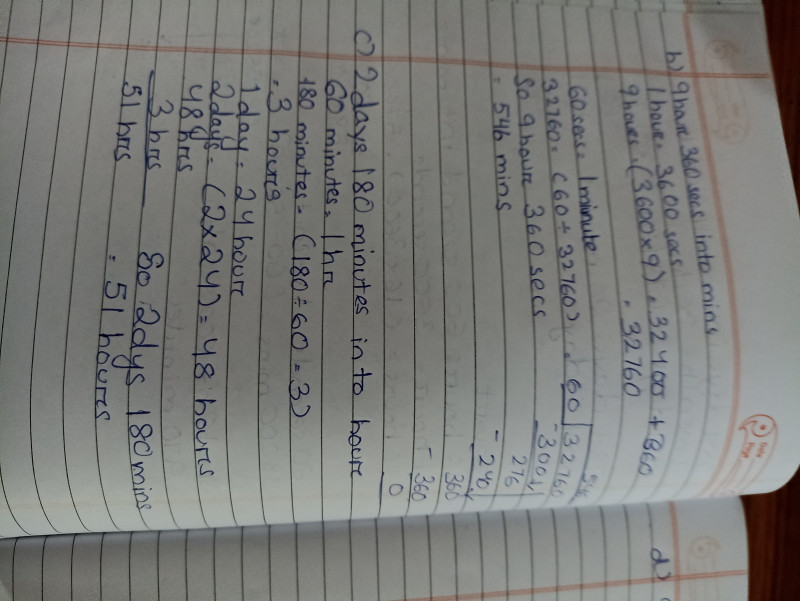 b) 9 hour 360 secs into mins
1 hour = 3600 secs
9 hours = (3600×9) = 32400 + 360
= 32760
60 secs = 1 minute
32760 = (60 ÷ 32760)
So 9 hour 360 secs
= 546 mins
546
60 32760
-300
276
-240
360
-360
0
c) 2 days 180 minutes in to hours
60 minutes = 1 hr
180 minutes = (180 ÷ 60 = 3)
= 3 hours
1 day = 24 hours
2 days = (2×24) = 48 hours
48 hrs
3 hrs
51 hrs
So 2 dys 180 mins
= 51 hours
d)